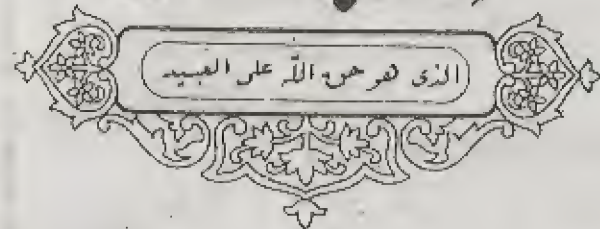 الذى هو حق اللّه على العبيد